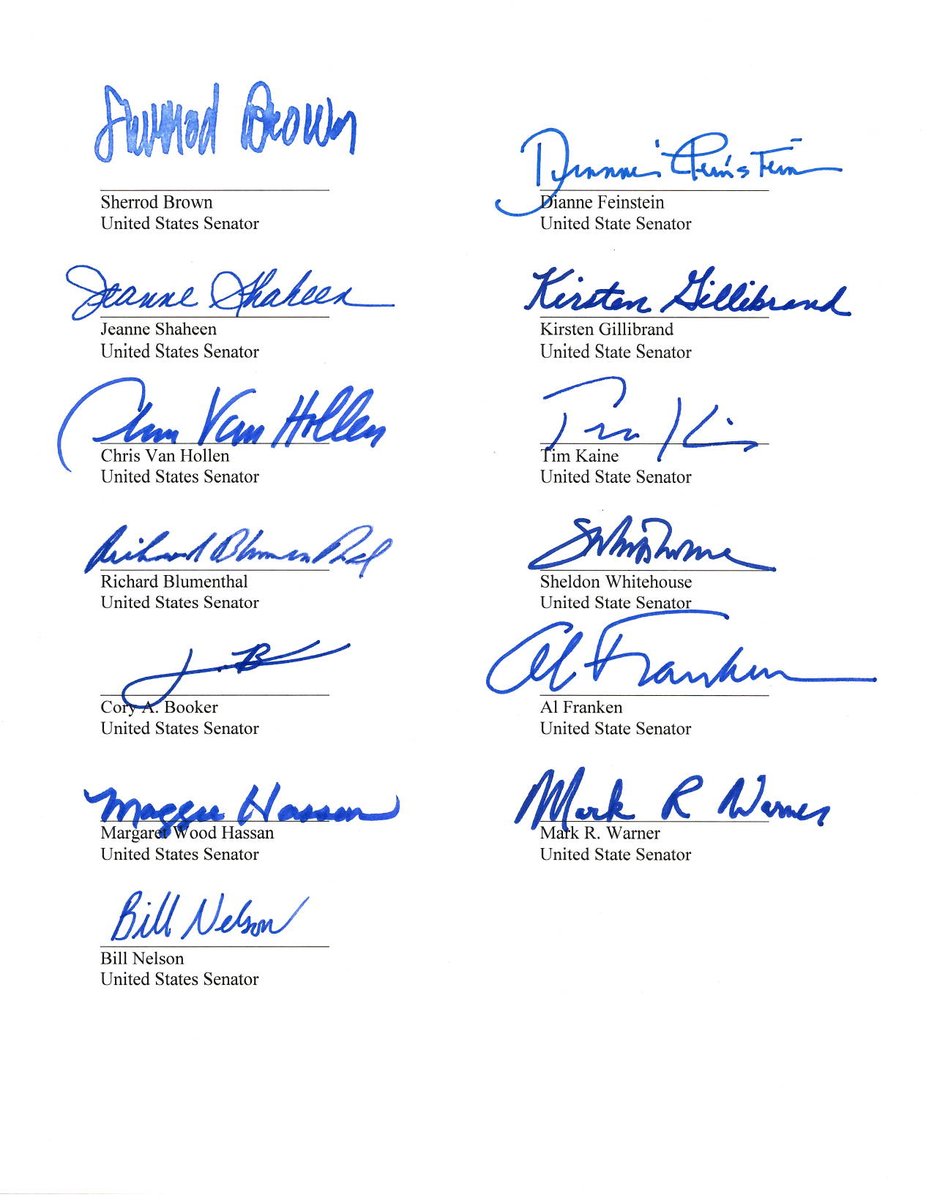 Sherrod Brown
Sherrod Brown
United States Senator
Dianne Feinstein
Dianne Feinstein
United State Senator
Jeanne Shaheen
Jeanne Shaheen
United States Senator
Kirsten Gillibrand
Kirsten Gillibrand
United State Senator
Chris Van Hollen
Chris Van Hollen
United States Senator
Tim Kaine
Tim Kaine
United State Senator
Richard Blumenthal
Richard Blumenthal
United States Senator
Sheldon Whitehouse
United State Senator
Cory A. Booker
United States Senator
Al Franken
Al Franken
United State Senator
Maggie Hassan
Margaret Wood Hassan
United States Senator
Mark R Warner
Mark R. Warner
United State Senator
Bill Nelson
Bill Nelson
United States Senator